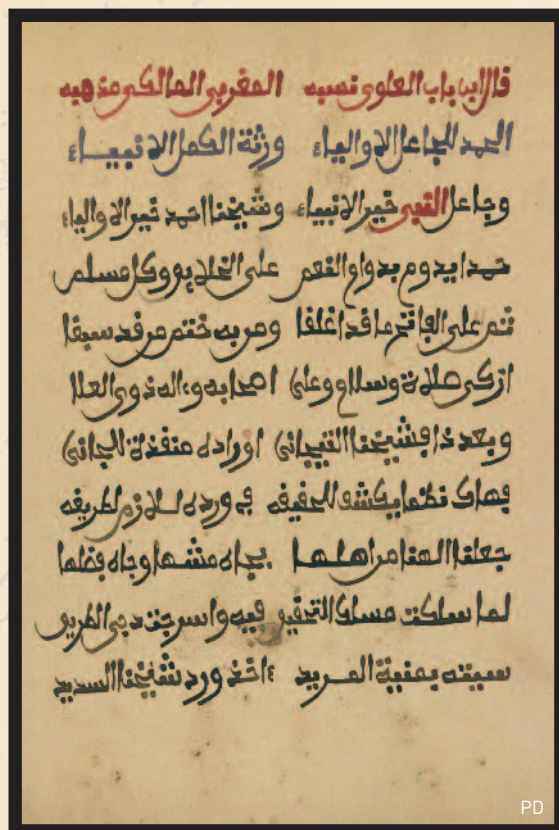 قال ابن باب العلوي نسبه المغربي المالكي مذهبه
الحمد للجاعل الاولياء ورثة الكمل الانبياء
وجاعل النبي خير الانبياء وشيخنا احمد خير الاولياء
حمدا يدوم بدوام النعم على الخلايق وكل مسلم
ثم على الفاتح ما قد اغلقا ومن به ختم من قد سبقا
ازكى صلاة وسلام وعلى اصحابه وءاله ذوي العلا
وبعد ذا فشيخنا التيجاني اوراده منقذة للجاني
فهاك نظما يكشف الحقيقه في ورده اللازم لطريقه
جعلنا الهنا من اهلها بجاه منشها وجاه فضلها
لما سلكت مسلك التحقيق فيه واسرجت دجى الطريق
سميته بمنية المريد ءاخذ ورد شيخنا السديد
PD